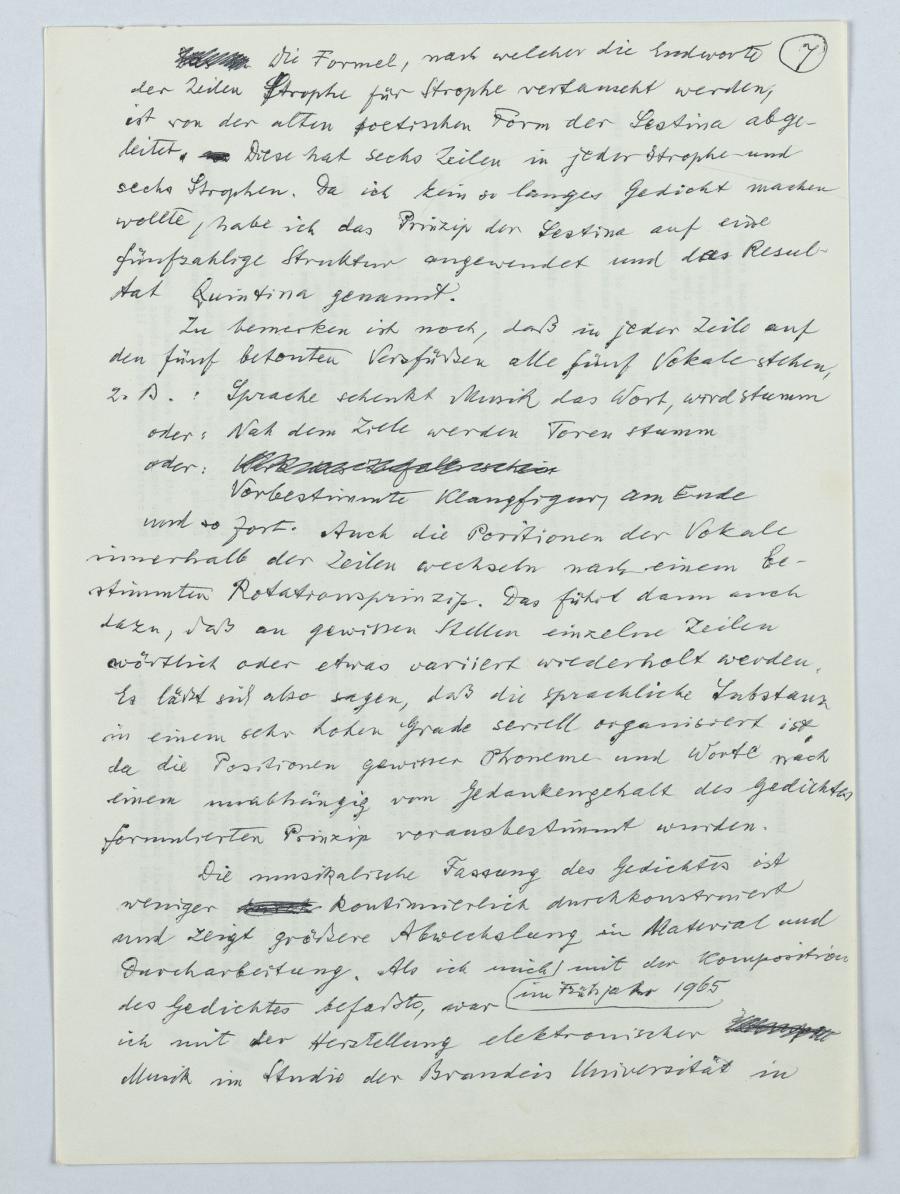 7
Die Formel, nach welcher die Endworte
der Zeilen Strophe für Strophe vertauscht werden,
ist von der alten poetischen Form der Sestina abge-
leitet. Diese hat sechs Zeilen in jeder Strophe und
sechs Strophen. Da ich kein so langes Gedicht machen
wollte, habe ich das Prinzip der Sestina auf eine
fünfzahlige Struktur angewendet und das Resul-
tat Quintina genannt.
Zu bemerken ist noch, daß in jeder Zeile auf
den fünf betonten Versfüßen alle fünf Vokale stehen,
z. B. : Sprache schenkt Musik das Wort, wird stumm
oder: Nah dem Ziele werden Toren stumm
oder:
Vorbestimmte Klangfigur, am Ende
und so fort. Auch die Positionen der Vokale
innerhalb der Zeilen wechseln nach einem be-
stimmten Rotationsprinzip. Das führt dann auch
dazu, daß an gewissen Stellen einzelne Zeilen
wörtlich oder etwas variiert wiederholt werden.
Es läßt sich also sagen, daß die sprachliche Substanz
in einem sehr hohen Grade seriell organisiert ist,
da die Positionen gewisser Phoneme und Worte nach
einem unabhängig vom Gedankengehalt des Gedichtes
formulierten Prinzip vorausbestimmt wurden.
Die musikalische Fassung des Gedichtes ist
weniger kontinuierlich durchkonstruiert
und zeigt größere Abwechslung in Material und
Durcharbeitung. Als ich mich mit der Komposition
des Gedichtes befaßte, war (im Frühjahr 1965)
ich mit der Herstellung elektronischer
Musik im Studio der Brandeis Universität in